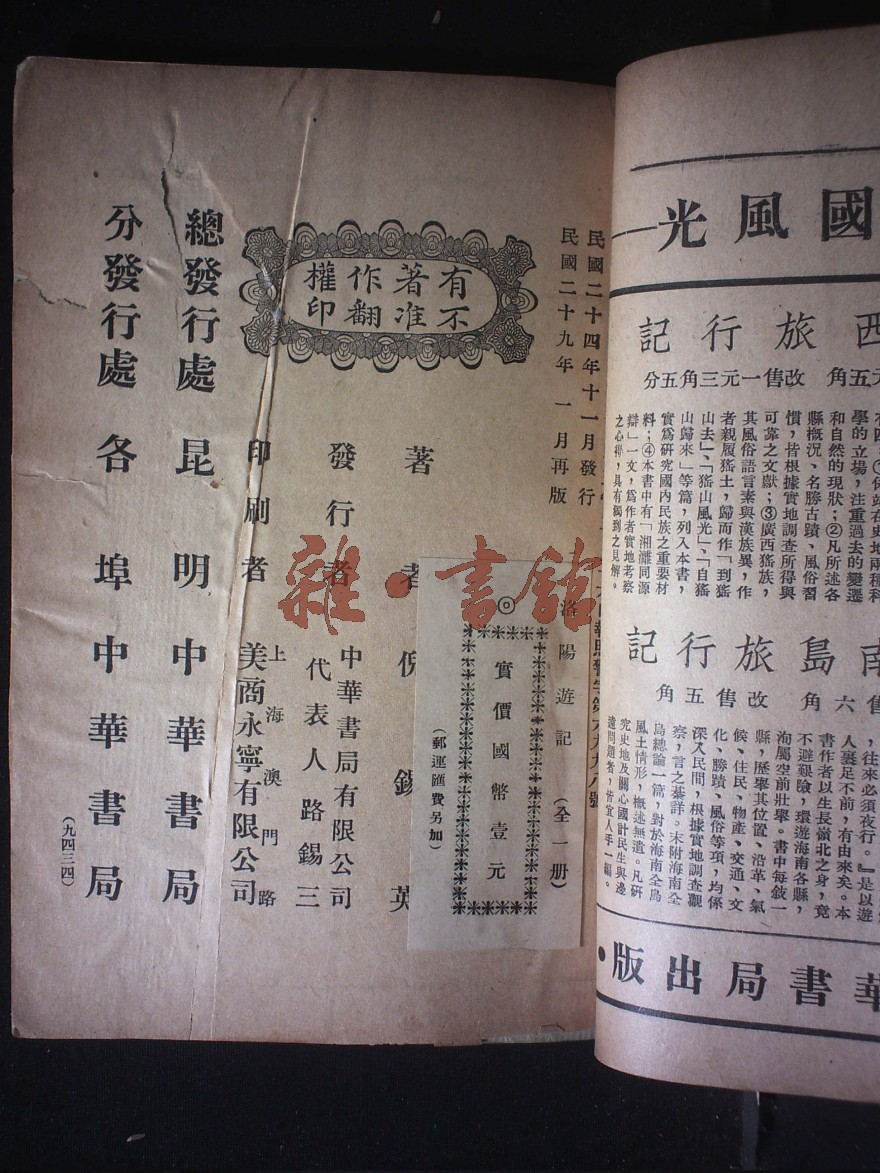 民國二十四年十一月發行
民國二十九年一月再版
有著作權
不准翻印
◎洛陽遊記（全一册）
實價國幣壹元
（郵運匯費另加）
著者倪錫英
發行者
中華書局有限公司
代表人路錫三
印刷者
上海澳門路
美商永寧有限公司
總發行處 昆明中華書局
分發行處 各埠中華書局
（九四三四）
雜·書館
國風光
西旅行記
元五角 改售一元三角五分
學的立場，注重過去的變遷
和自然的現狀；②凡所述各
縣概況、名勝古蹟、風俗習
慣，皆根據實地調查所得與
可靠之文獻；③廣西猺族，
其風俗語言素與漢族異，作
者親履猺土，歸而作「到猺
山去」、「猺山風光」、「自猺
山歸來」等篇，列入本書，
實爲研究國內民族之重要材
料；④本書中有「湘灕同源
辯」一文，爲作者實地考察
之心得，具有獨到之見解。
南島旅行記
六角 改售五角
，往來必須夜行。』是以遊
人裹足不前，有由來矣。本
書作者以生長嶺北之身，竟
不避艱險，環遊海南各縣，
洵屬空前壯舉。書中每敍一
縣，歷舉其位置、沿革、氣
候、住民、物產、交通、文
化、勝蹟、風俗等項，均係
深入民間，根據實地調查觀
察，言之綦詳。末附海南全
島總論一篇，對於海南全島
風土情形，概述無遺。凡研
究史地及關心國計民生與邊
遠問題者，皆宜人手一編。
華書局出版·